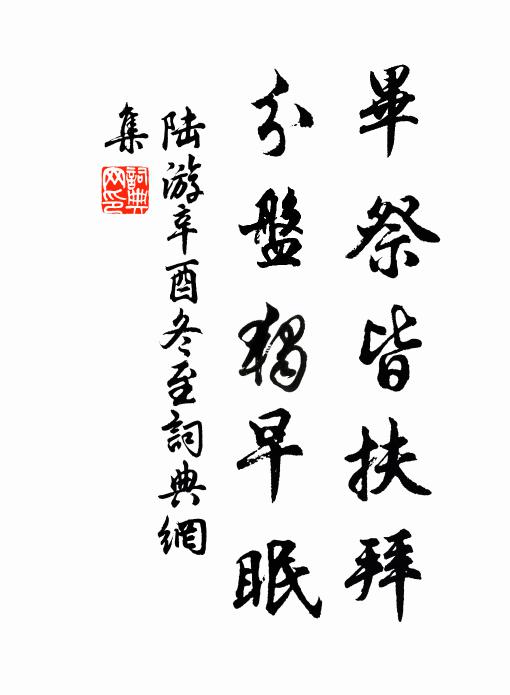 畢祭皆扶拜
分盤獨早眠
陸游辛酉冬至詞典網
集
詞典
网印